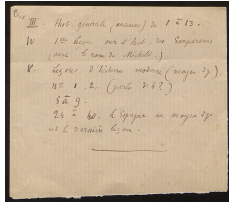 III Hist. générale (ancienne) de 1 à 13.
IV 1ère leçon sur l'hist. des Empereurs
(avec le nom de Michelet).
V. Leçons d'histoire moderne (moyen âge).
nos 1, 2. (perte de 6?)
5 à 9.
24 à 40. l'Espagne au moyen âge
est la dernière leçon.